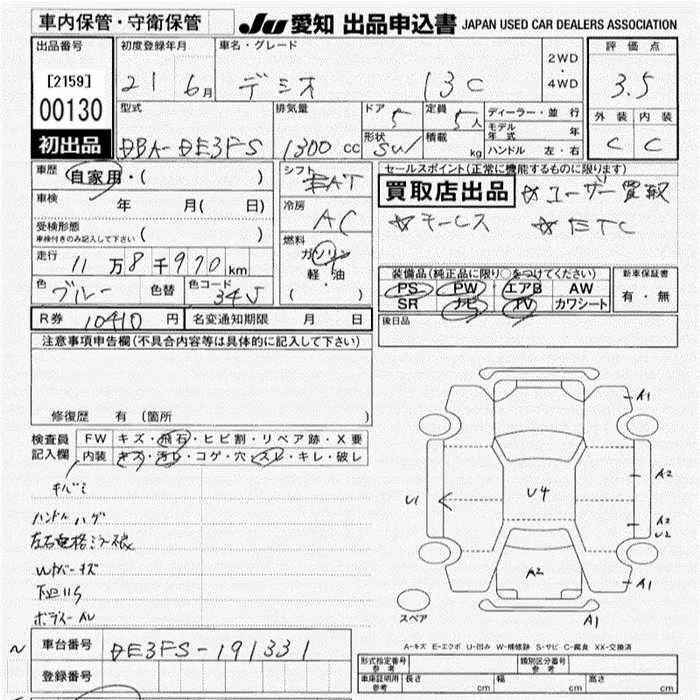 車内保管・守衛保管
JU 愛知 出品申込書 JAPAN USED CAR DEALERS ASSOCIATION
出品番号 初度登録年月 車名・グレード 評価点
[2159] 21 6月 デミオ 13C 2WD・4WD 3.5
00130
型式 排気量 ドア 5 定員 5人 ディーラー・並行 外装 内装
モデル年式 年
初出品 DBA-DE3FS 1300cc 形状 SW 積載 kg ハンドル 左・右 C C
車歴 自家用・( ) シフト FAT セールスポイント(正常に機能するものに限ります)
車検 年 月( 日) 冷房 AC 買取店出品 ☆ユーザー買取
受検形態 ( ) ☆キーレス ☆ETC
車検付きのみ記入して下さい
走行 11万8千970km 燃料 ガソリン 軽・油 ( ) 装備品(純正品に限り○をつけてください) 新車保証書
色 ブルー 色替 色コード 34J PS PW エアB AW 有・無
SR ナビ TV カワシート
R券 10410円 名変通知期限 月 日 後日品
注意事項申告欄(不具合内容等は具体的に記入して下さい)
修復歴 有(箇所
検査員 FW キズ・飛石・ヒビ割・リペア跡・X要
記入欄 内装 キズ・汚レ・コゲ・穴・スレ・キレ・破レ
A1
キバミ
A2
U1 U4
ハンドルハゲ
A2
U2
左右電格ミラー痕
Wカバーキズ
A2 A1
下廻りS
ボディーAU
スペア A1
車台番号 DE3FS-191331
A-キズ E-エクボ U-凹み W-補修跡 S-サビ C-腐食 XX-交換済
登録番号
形式指定番号 参考 類別区分番号 参考
車庫証明用 参考 長さ cm 幅 cm 高さ cm